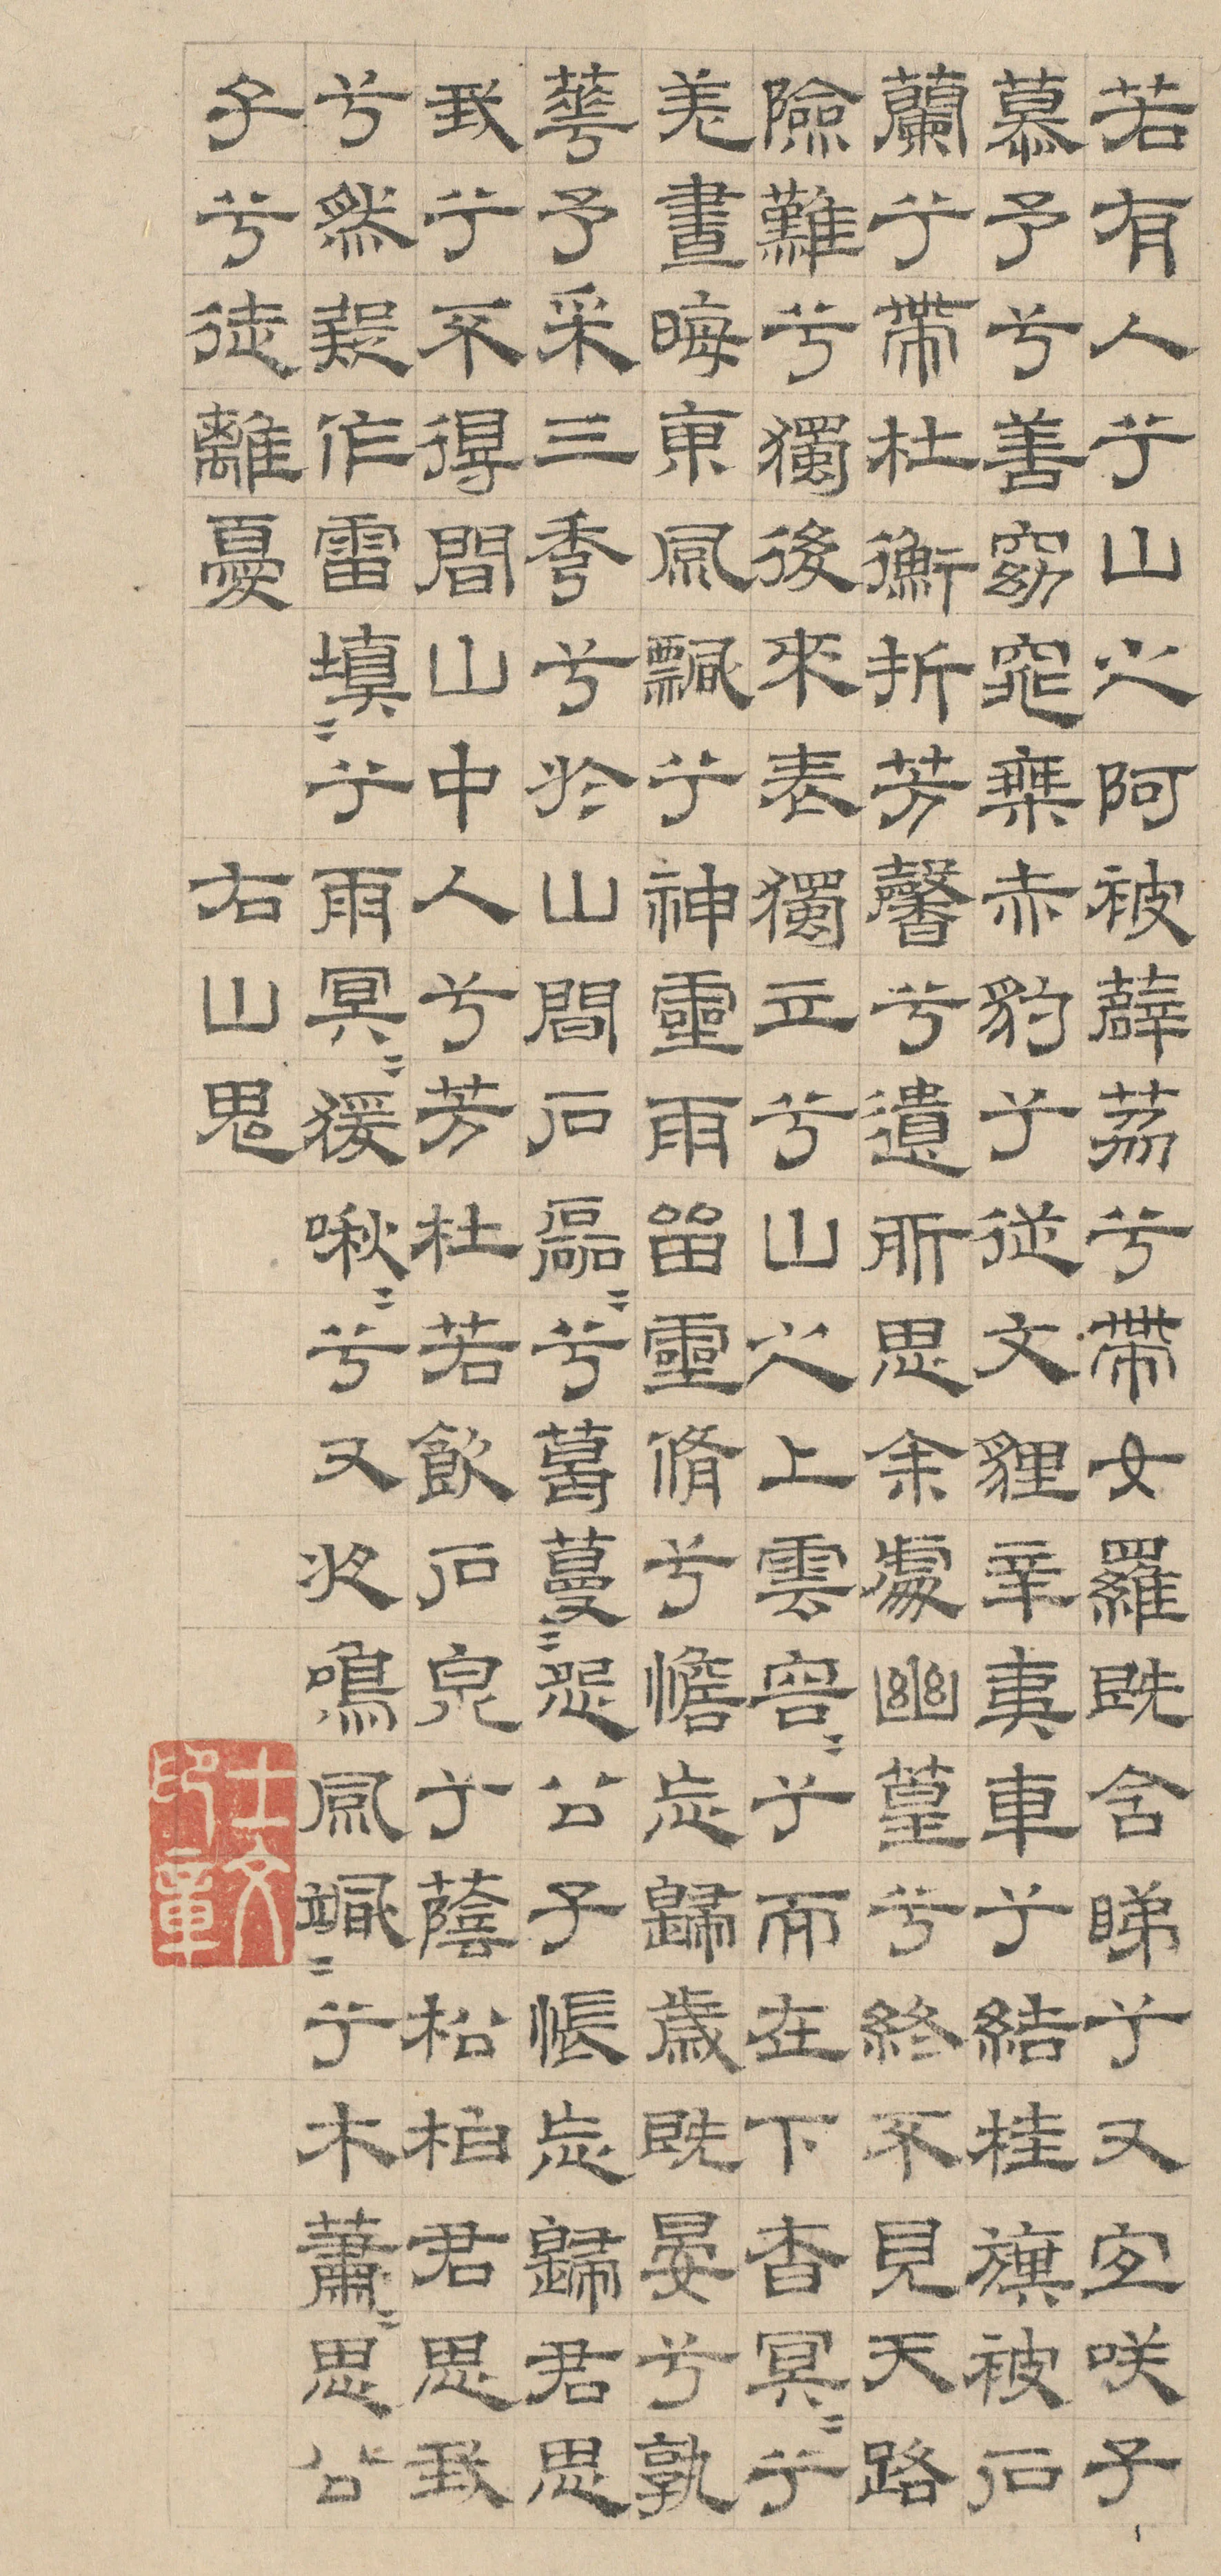 若有人兮山之阿被薜荔兮帶女羅既含睇兮又宜咲子
慕予兮善窈窕乘赤豹兮從文貍辛夷車兮結桂旗被石
蘭兮帶杜衡折芳馨兮遺所思余處幽篁兮終不見天路
險難兮獨後來表獨立兮山之上雲容〻兮而在下杳冥〻兮
羌晝晦東風飄兮神靈雨留靈脩兮憺忘歸歲既晏兮孰
華予采三秀兮於山間石磊〻兮葛蔓〻怨公子悵忘歸君思
我兮不得間山中人兮芳杜若飲石泉兮蔭松柏君思我
兮然疑作雷填〻兮雨冥〻猨啾〻兮又夜鳴風颯〻兮木蕭〻思公
子兮徒離憂　右山鬼
士文印章